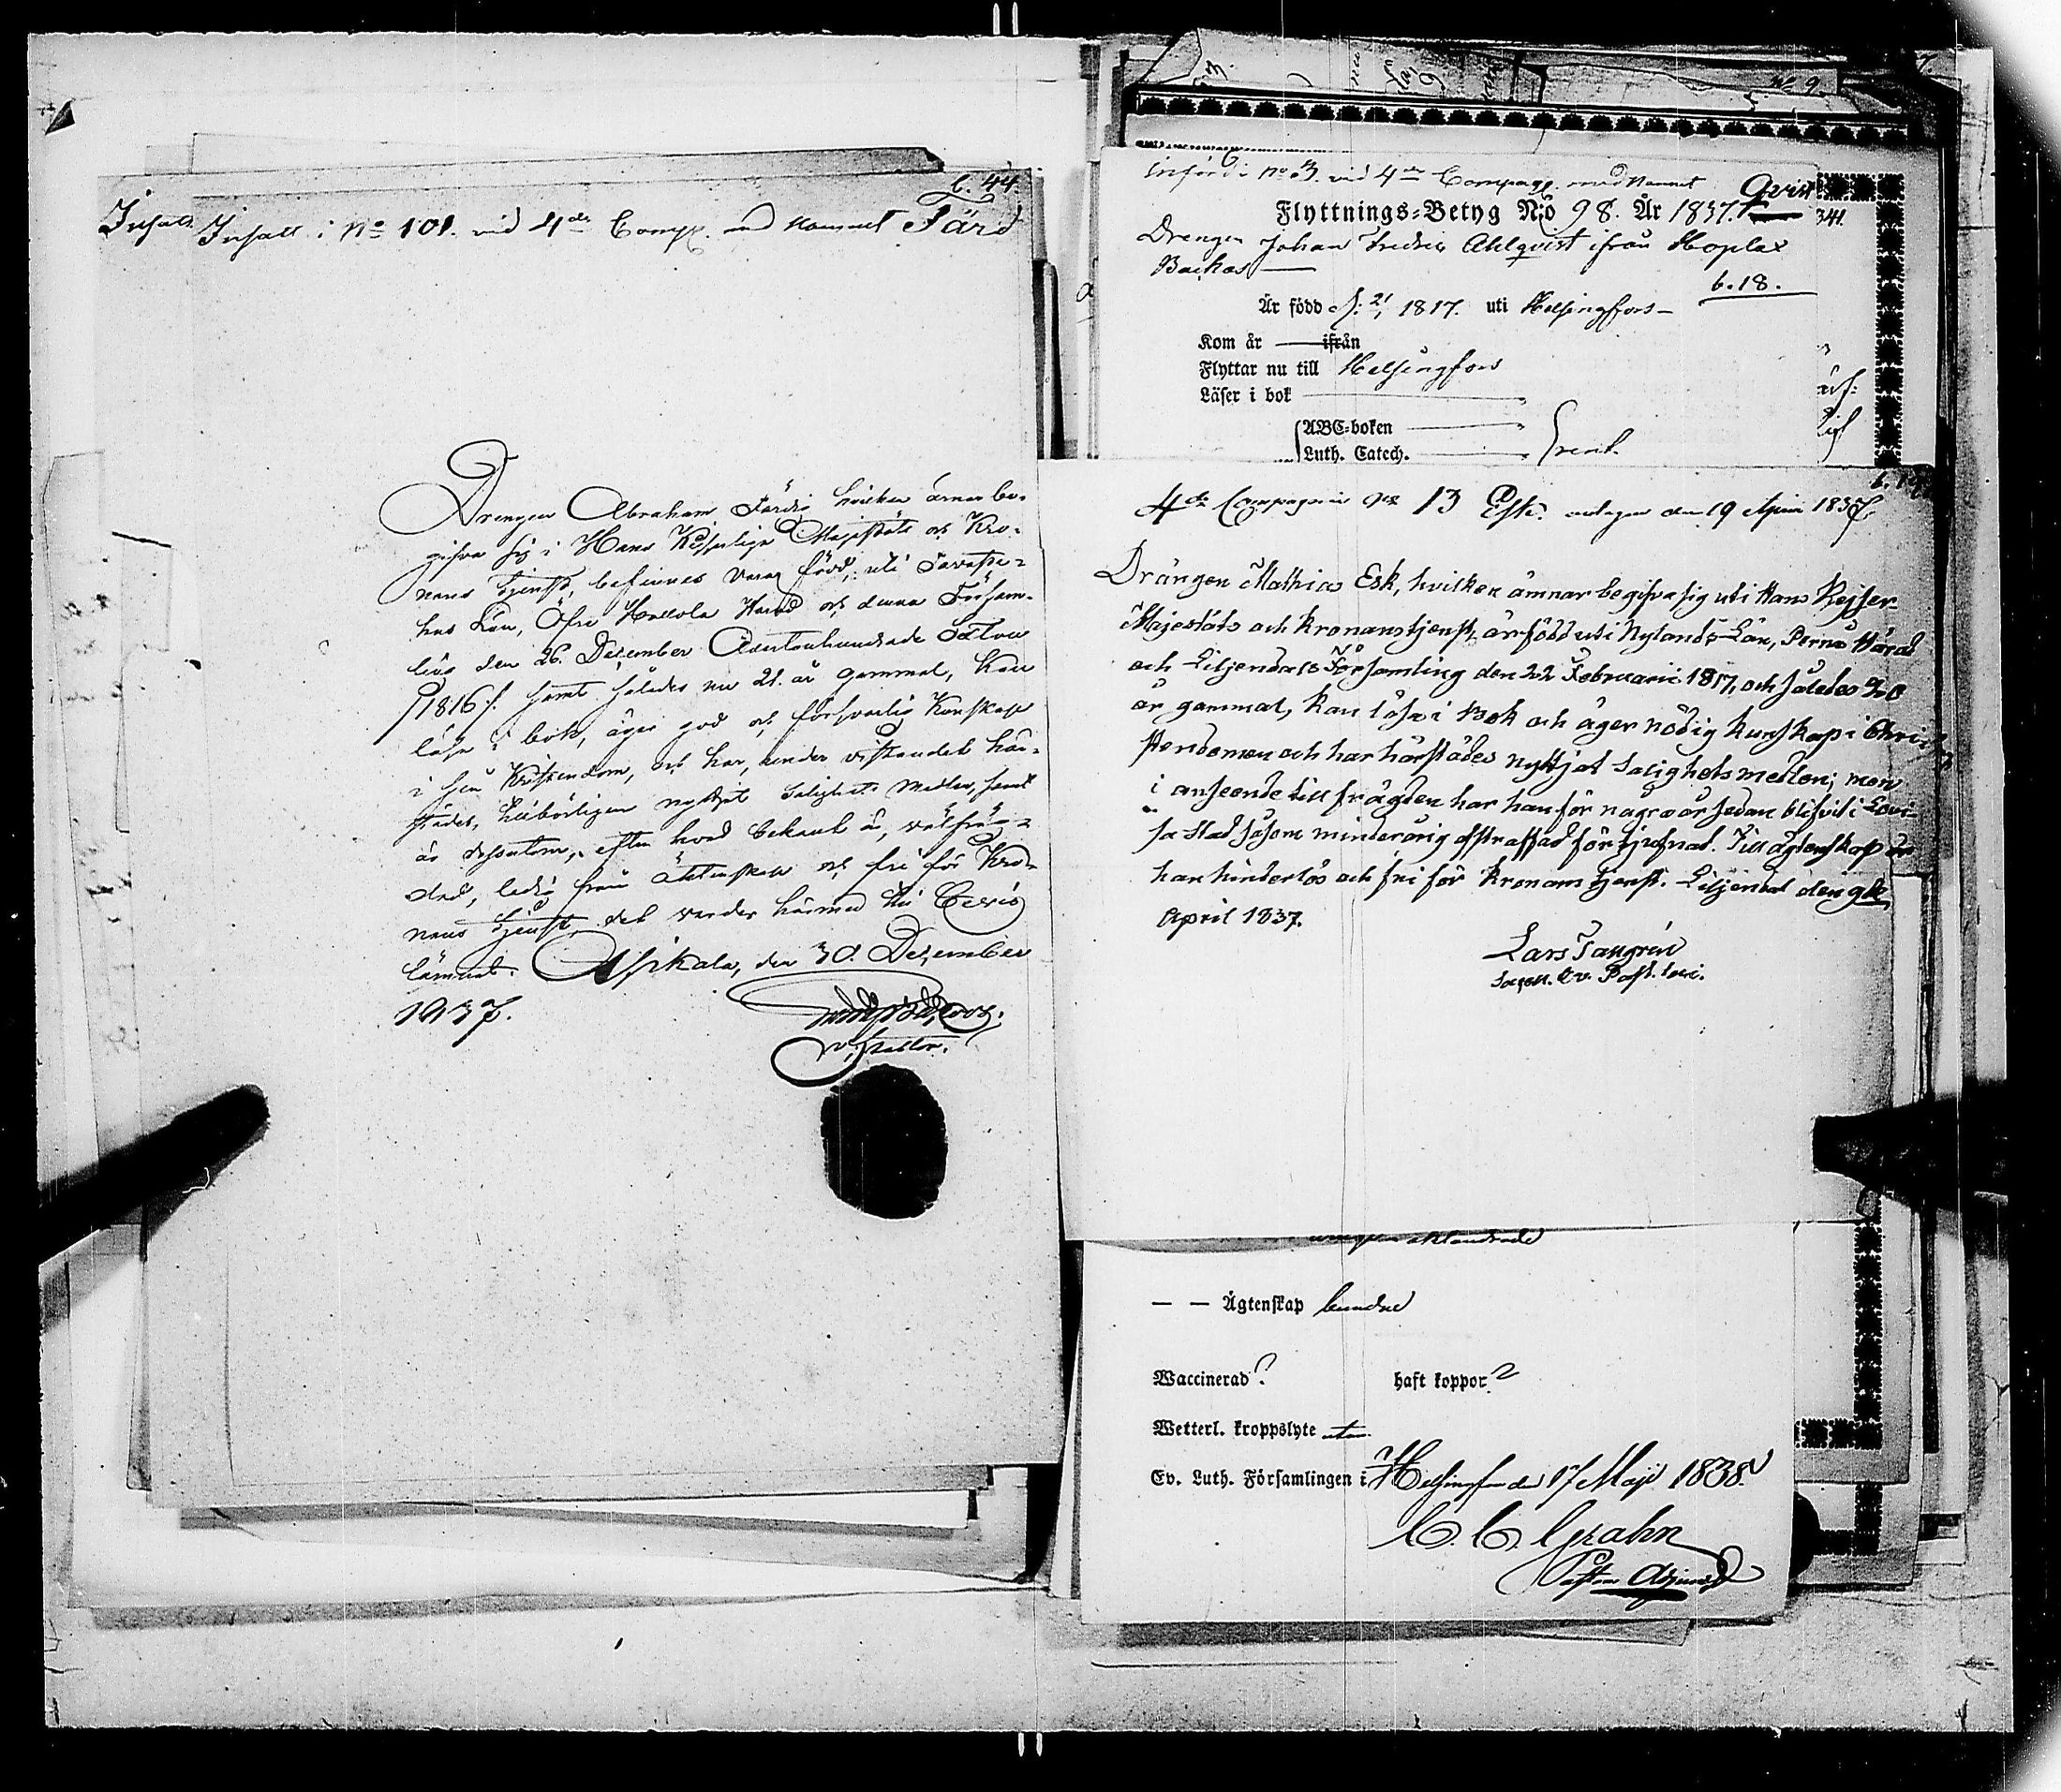 b. 44.
Insatt i No 101. vid 4de Comp. med namnet Färd
Drengen Abraham Färdig hvilken ämnar be-
gifva sig i Hans Kejserliga Majestäts och Kro-
nans tjenst, befinnes vara född uti Tavaste-
hus Län, Öfre Hollola Härad och denna Försam-
ling den 26. December Adertonhundrade Sexton
/1816/. samt således nu 21. år gammal, kan
läsa i bok, äger god och försvarlig Kunskap
i sin Kristendom, och har, under vistandet här-
städes, behörigen nyttjat Salighets medlen, samt
är dessutom, efter hvad bekant är, välfräg-
dad, ledig från äktenskap och fri för Kro-
nans tjenst det varder härmed till Bevis
lämnat. Asikala, den 30. December
1837.
v. Pastor.
Införd i No 3. vid 4de Compagn. med Namnet Qvist
Flyttnings-Betyg N:o 98. År 1837.
341.
Drengen Johan Fredric Ahlqvist ifrån Hoplax
Backas
b. 18.
Är född d. 21/ 1817. uti Helsingfors
Kom år ifrån
Flyttar nu till Helsingfors
Läser i bok
ABC-boken
Luth. Catech.
4de Compagnie No 13 Esk. antagen den 19 April 1837.
Drängen Mathias Esk, hvilken ämnar begifva sig uti Hans Kejser-
Majestäts och Kronans tjenst, är född uti Nylands Län, Perno Härad
och Liljendals Församling den 22 Februarii 1817, och således 20
år gammal, kan läsa i Bok och äger nödig kunskap i Chri-
stendomen och har härstädes nyttjat Salighetsmedlen; men
i anseende till frägden har han för några år sedan blifvit i Lovi-
sa Stad såsom minderårig afstraffad för tjufnad. Till ägtenskap är
han hinderlös och fri för Kronans tjenst. Liljendal den 9de
April 1837.
Lars Tallgrén
Sacell. o. v. Past. Loci.
— — Ägtenskap bunden
Waccinerad?
haft koppor?
Wetterl. kroppslyte utan
Ev. Luth. Församlingen i Helsingfors den 17 Maji 1838.
C. C. Grahn
Pastors Adjunct